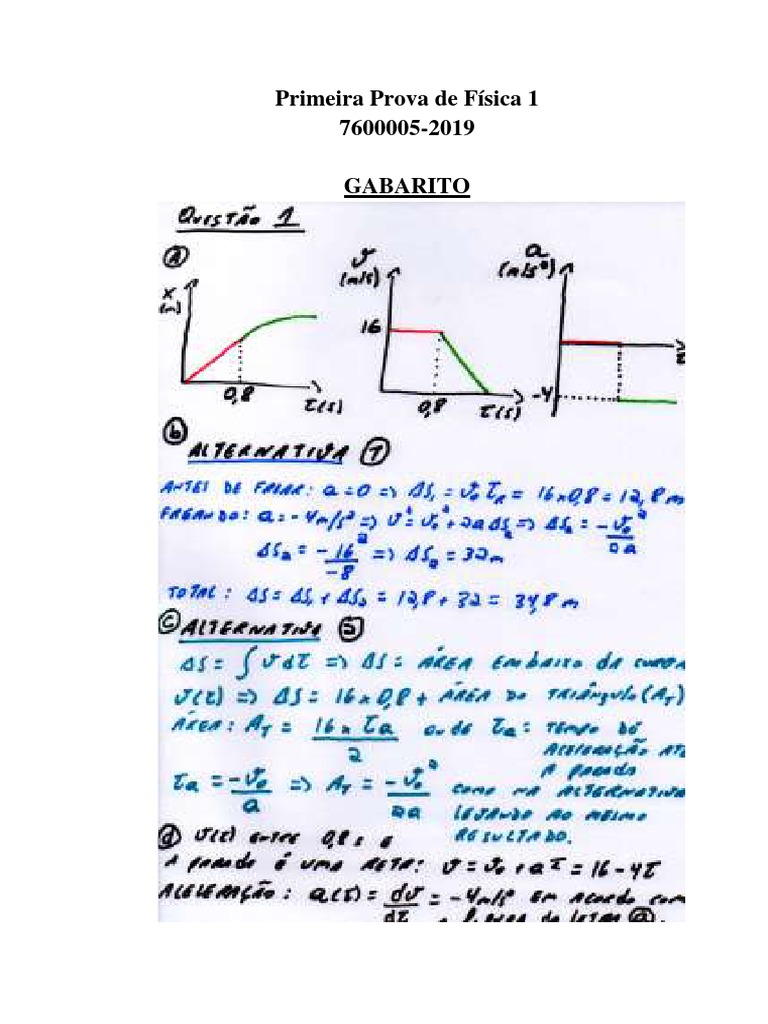 Primeira Prova de Física 1
7600005-2019
GABARITO
QUESTÃO 1
a
X (m) 0,8 t(s)
v (m/s) 16 0,8 t(s)
a (m/s²) -4
b ALTERNATIVA 1
ANTES DE FREAR: a=0 => ΔS₁ = v₀ tR = 16x0,8 = 12,8 m
FREANDO: a = -4 m/s² => v² = v₀² + 2a ΔS₂ => ΔS₂ = -v₀²/2a
ΔS₂ = -16²/-8 => ΔS₂ = 32m
TOTAL: ΔS = ΔS₁ + ΔS₂ = 12,8 + 32 = 34,8 m
c ALTERNATIVA 2
ΔS = ∫ v dt => ΔS = ÁREA EMBAIXO DA CURVA
v(t) => ΔS = 16x0,8 + ÁREA DO TRIÂNGULO (AT)
ÁREA: AT = 16 x ta/2 ONDE ta = TEMPO DE
ACELERAÇÃO ATÉ
A PARADA
ta = -v₀/a => AT = -v₀²/2a COMO NA ALTERNATIVA
LEVANDO AO MESMO
RESULTADO.
d v(t) ENTRE 0,8s E
A PARADA É UMA RETA: v = v₀ + at = 16 - 4t
ACELERAÇÃO: a(t) = dv/dt = -4m/s² EM ACORDO COM
DA LETRA a.